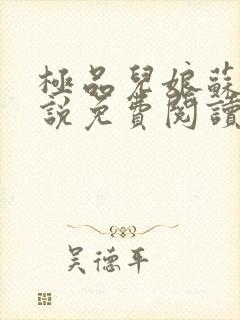 極品兒娘蘇
說免費閱讀
吴德平